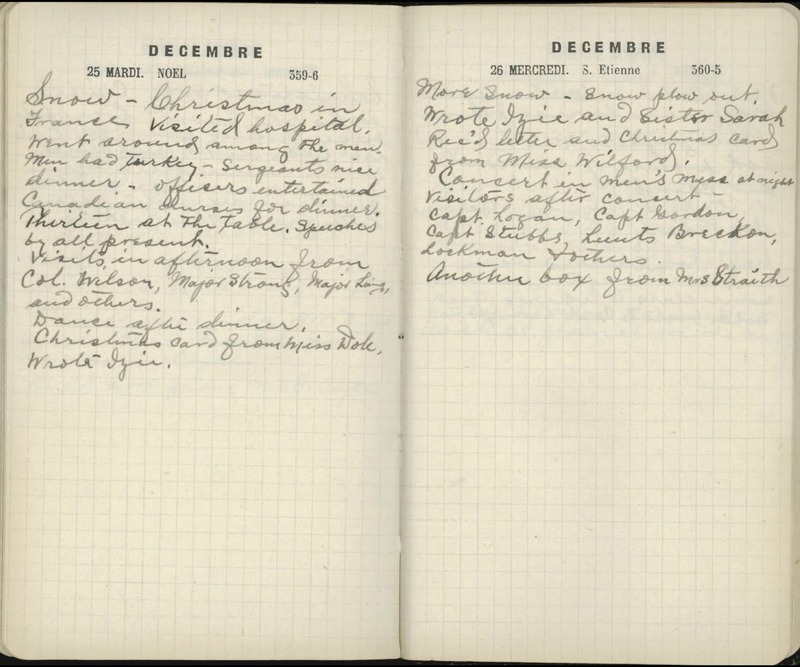 DECEMBRE
25 MARDI. NOEL 359-6
Snow - Christmas in
France Visited hospital.
Went around among the men.
Men had turkey - Sergeants nice
dinner. - Officers entertained
Canadian Nurses for dinner.
Thirteen at the table. Speeches
by all present.
Visits in afternoon from
Col. Wilson, Major Strong, Major Long,
and others.
Dance after dinner.
Christmas card from Miss Dole.
Wrote Izie.
DECEMBRE
26 MERCREDI. S. Etienne 360-5
More Snow - Snow plow out.
Wrote Izie and Sister Sarah
Rec'd letter and Christmas card
from Miss Wilford.
Concert in men's mess at night
Visitors after concert -
Capt. Logan, Capt Gordon,
Capt Stubbs, Lieuts Breckon,
Lockman & others.
Another box from Mrs Straith